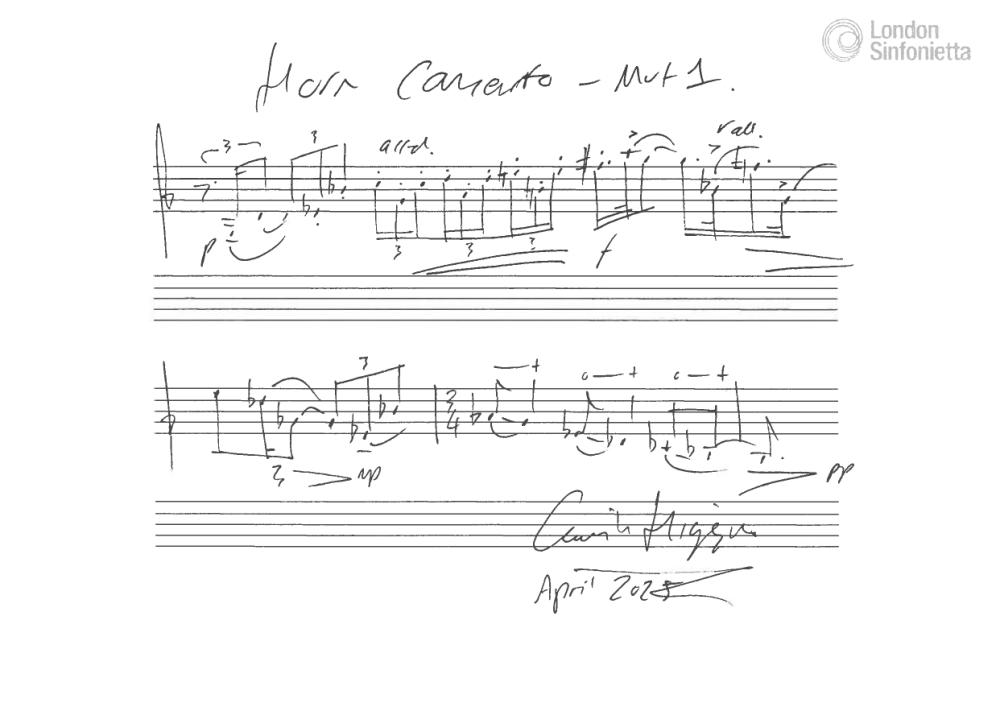 London
Sinfonietta
Horn Concerto - Mvt 1.
3 3 accel. rall.
3 3 3
p f
3
3 4
3 mp pp
Gavin Higgins
April 2025